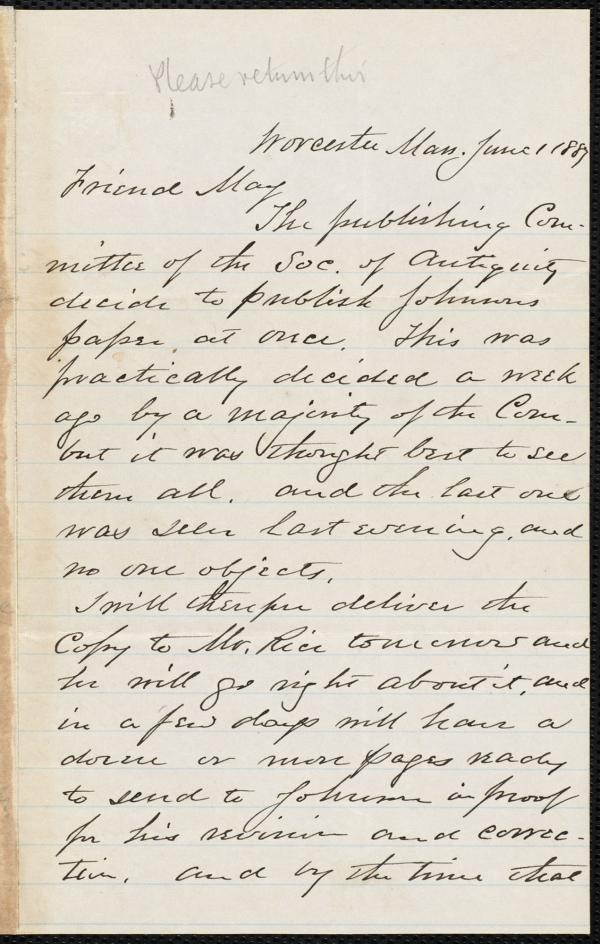 Please return this
Worcester Mass. June 1 1887
Friend May
The publishing Com-
mittee of the Soc. of Antiquity
decide to publish Johnsons
paper at once. This was
practically decided a week
ago by a majority of the Com-
but it was thought best to see
them all. and the last one
was seen last evening, and
no one objects.
I will therefore deliver the
Copy to Mr. Rice tomorrow and
he will go right about it, and
in a few days will have a
dozen or more pages ready
to send to Johnson in proof
for his revision and correc-
tion. and by the time that